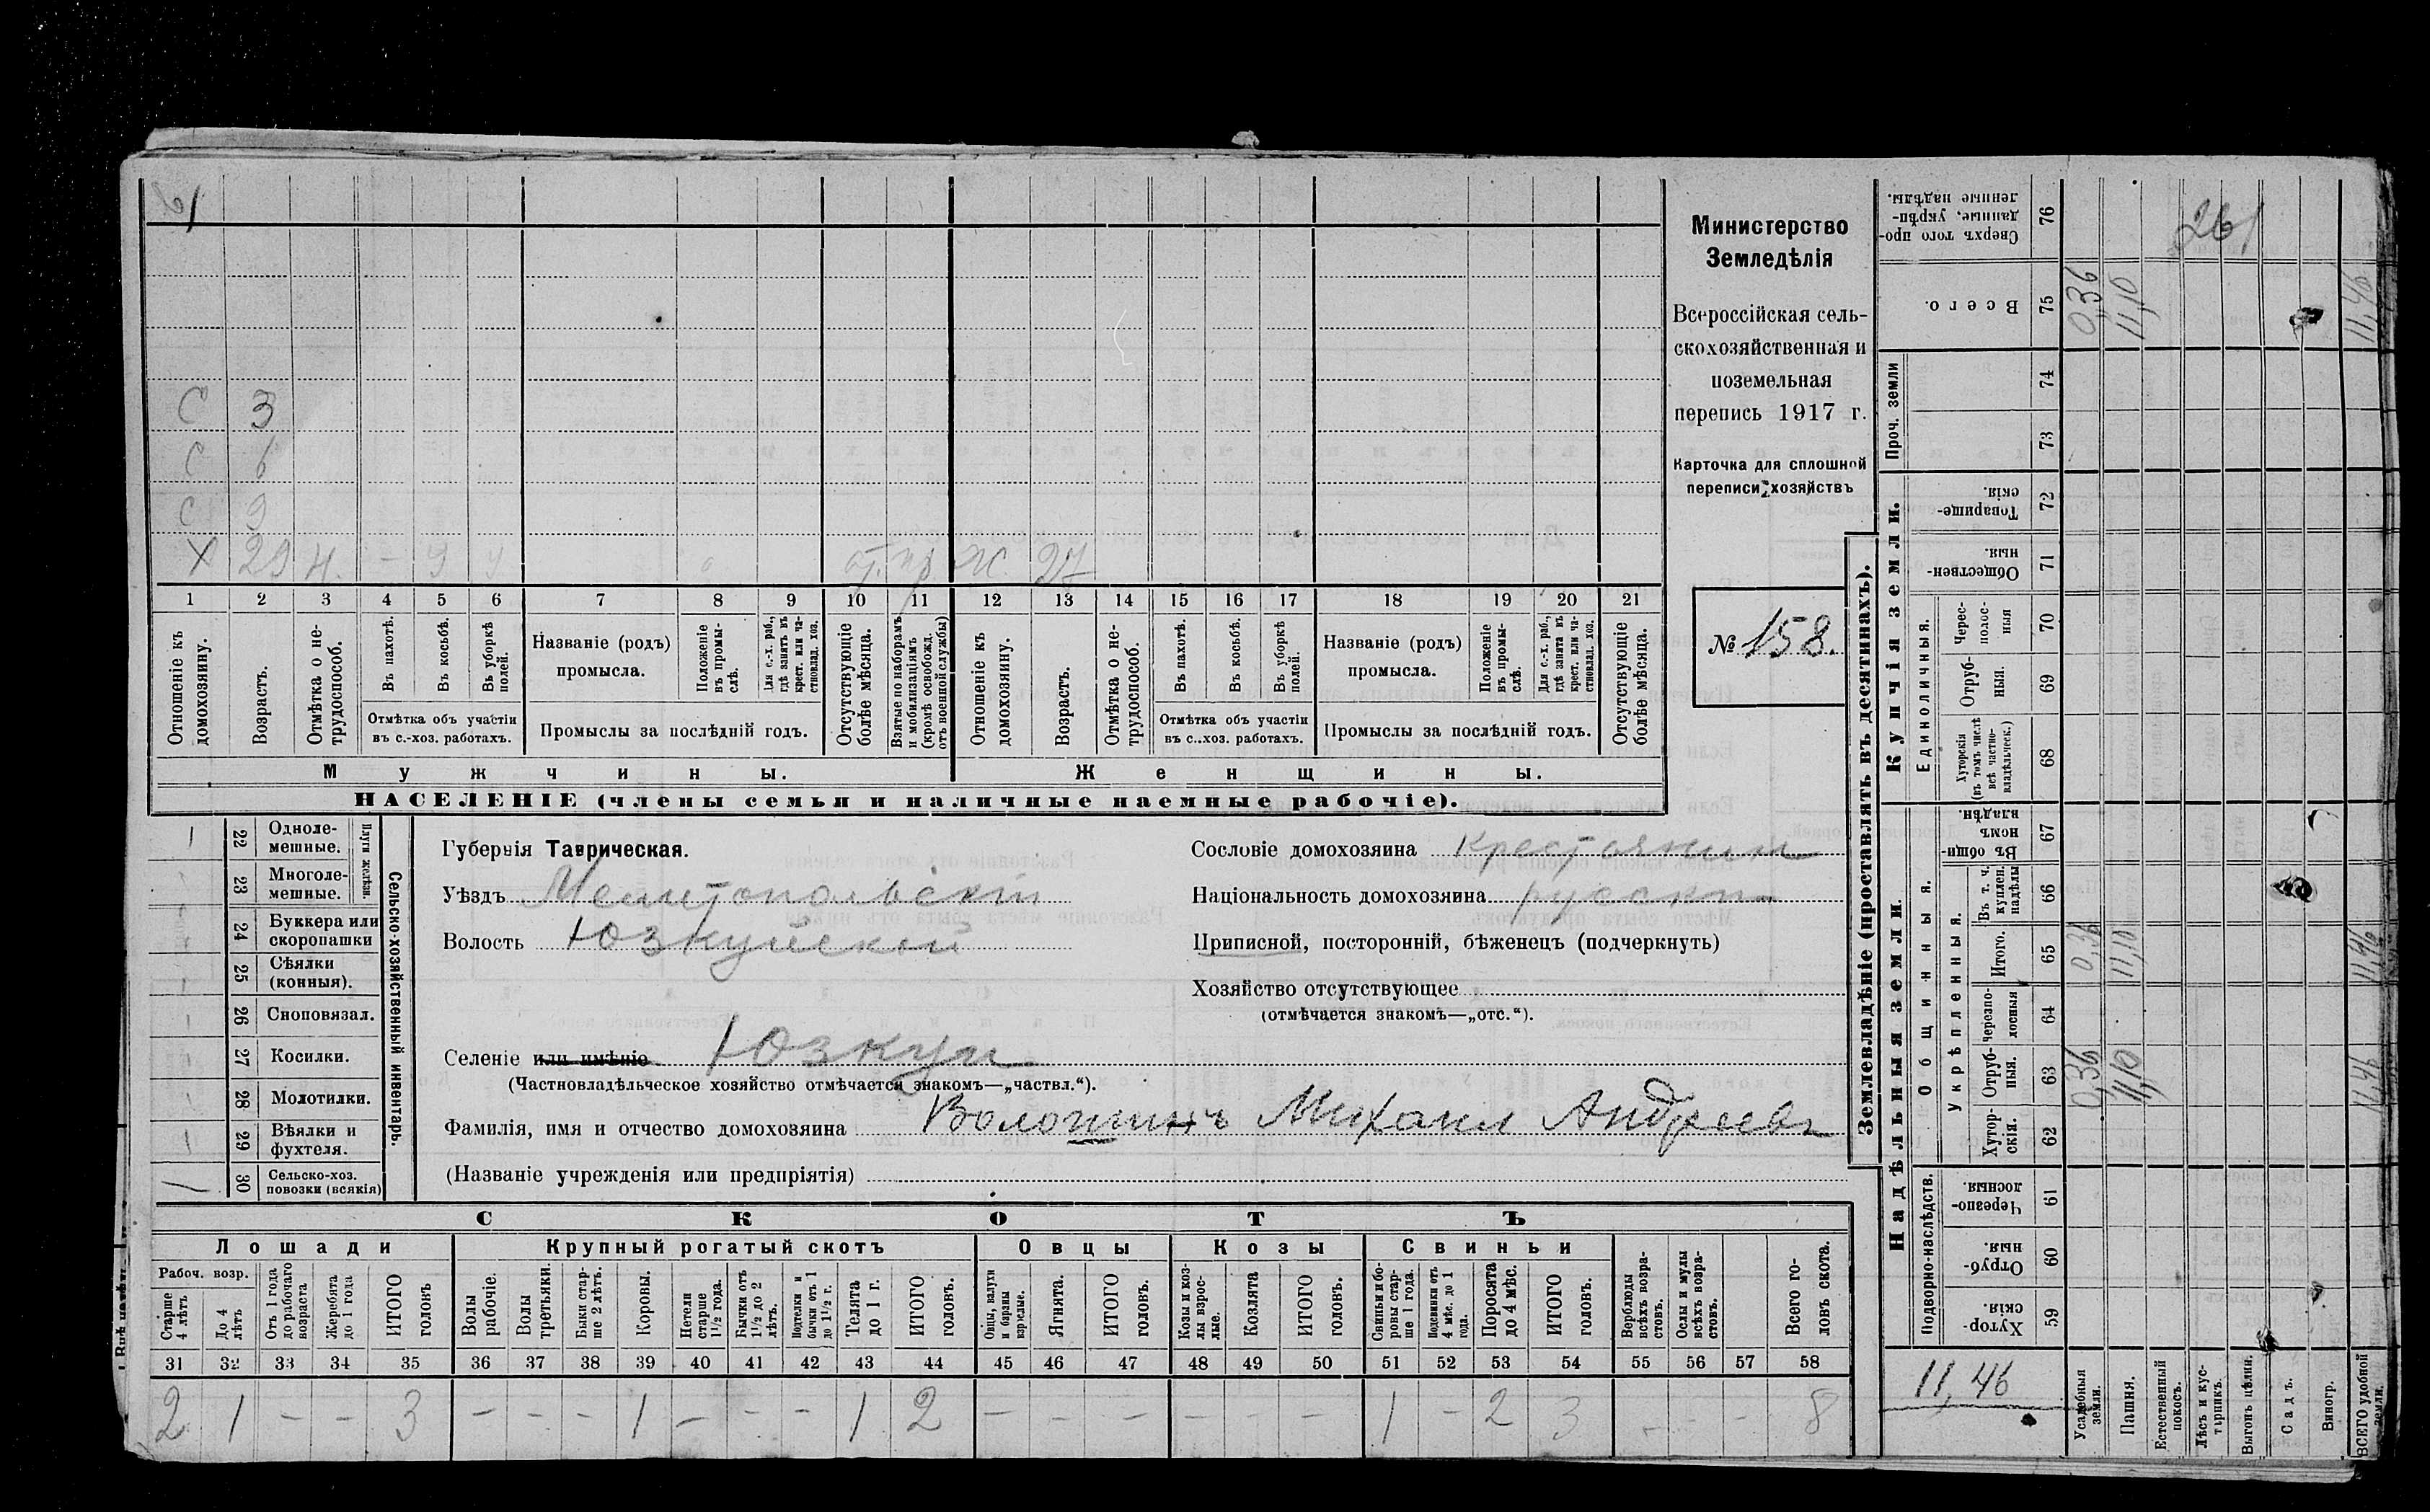 61
С 3
С 6
С 9
Х 29 н. - ч ч от. пр Ж 27
1 2 3 4 5 6 7 8 9 10 11 12 13 14 15 16 17 18 19 20 21
Отношеніе къ домохозяину.
Возрастъ.
Отмѣтка о нетрудоспособ.
Въ пахотѣ.
Въ косьбѣ.
Въ уборкѣ полей.
Отмѣтка объ участіи
въ с.-хоз. работахъ.
Названіе (родъ)
промысла.
Положеніе въ промыслѣ.
Для с.-х. раб., гдѣ занятъ въ крест. или частновлад. хоз.
Промыслы за послѣдній годъ.
Отсутствующіе болѣе мѣсяца.
Взятые по наборамъ и мобилизаціямъ (кромѣ освобожд. отъ военной службы)
Отношеніе къ домохозяину.
Возрастъ.
Отмѣтка о нетрудоспособ.
Въ пахотѣ.
Въ косьбѣ.
Въ уборкѣ полей.
Отмѣтка объ участіи
въ с.-хоз. работахъ.
Названіе (родъ)
промысла.
Положеніе въ промыслѣ.
Для с.-х. раб., гдѣ занята въ крест. или частновлад. хоз.
Промыслы за послѣдній годъ.
Отсутствующіе болѣе мѣсяца.
Мужчины.
Женщины.
НАСЕЛЕНІЕ (члены семьи и наличные наемные рабочіе).
Министерство
Земледѣлія
Всероссійская сель-
скохозяйственная и
поземельная
перепись 1917 г.
Карточка для сплошной
переписи хозяйствъ
№ 158.
Сельско-хозяйственный инвентарь.
Плуги желѣзн.
1 22 Одноле-
мешные.
23 Многоле-
мешные.
24 Буккера или
скоропашки
25 Сѣялки
(конныя).
26 Сноповязал.
27 Косилки.
28 Молотилки.
29 Вѣялки и
фухтеля.
1 30 Сельско-хоз.
повозки (всякія)
Губернія Таврическая.
Уѣздъ Мелитопольскій
Волость Юзкуйской
Селеніе или имѣніе Юзкуи
(Частновладѣльческое хозяйство отмѣчается знакомъ—„частвл.“).
Фамилія, имя и отчество домохозяина Волошинъ Михаил Андреевъ
(Названіе учрежденія или предпріятія)
Сословіе домохозяина крестьянин
Національность домохозяина русский
Приписной, посторонній, бѣженецъ (подчеркнуть)
Хозяйство отсутствующее
(отмѣчается знакомъ—„отс.“).
СКОТЪ
Лошади
Крупный рогатый скотъ
Овцы
Козы
Свиньи
Рабоч. возр.
Старше 4 лѣтъ
До 4 лѣтъ
Отъ 1 года до рабочаго возраста
Жеребята до 1 года
ИТОГО головъ
Волы рабочіе.
Волы третьяки.
Быки старше 2 лѣтъ.
Коровы.
Нетели старше 1½ года.
Бычки отъ 1½ до 2 лѣтъ.
Подтелки и бычки отъ 1 до 1½ г.
Телята до 1 г.
ИТОГО головъ.
Овцы, валухи и бараны взрослые.
Ягнята.
ИТОГО головъ.
Козы и козлы взрослые.
Козлята
ИТОГО головъ.
Свиньи и боровы старше 1 года.
Подсвинки отъ 4 мѣс. до 1 года.
Поросята до 4 мѣс.
ИТОГО головъ.
Верблюды всѣхъ возрастовъ.
Ослы и мулы всѣхъ возрастовъ.
Всего головъ скота.
31 32 33 34 35 36 37 38 39 40 41 42 43 44 45 46 47 48 49 50 51 52 53 54 55 56 57 58
2 1 - - 3 - - - 1 - - - 1 2 - - - - - - 1 - 2 3 - - - 8
Землевладѣніе (проставлять въ десятинахъ).
Купчія земли.
Надѣльныя земли.
Сверхъ того проданные, укрѣпленные надѣлы. 76
261
Всего. 75 0,36 11,10 11,46
Проч. земли
74
73
Товарищескія. 72
Общественныя. 71
Единоличныя.
Чересполосныя 70
Отрубныя. 69
Хуторскія (въ томъ числѣ всѣ частновладѣльческ.) 68
Общинныя.
Въ общинномъ владѣн. 67
Укрѣпленныя.
Въ т. ч. куплен. надѣлы 66
Итого. 65 0,36 11,10 11,46
Черезполосныя 64
Отрубныя. 63 0,36 11,10 11,46
Хуторскія. 62
Подворно-наслѣдств.
Черезполосныя. 61
Отрубныя. 60
Хуторскія 59
11,46
Усадебныя земли.
Пашня.
Естественный покосъ.
Лѣсъ и кустарникъ.
Выгонъ цѣлин.
Садъ.
Виногр.
ВСЕГО удобной земли.